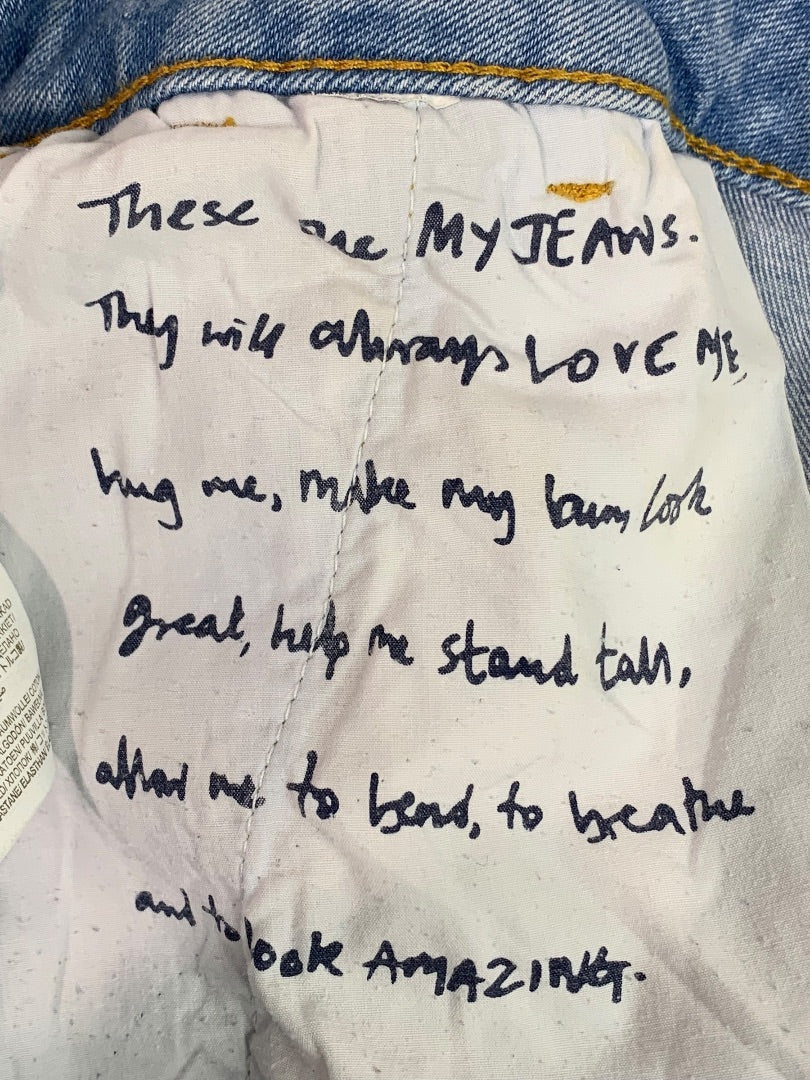 These are MY JEANS.
They will always LOVE ME,
hug me, make my bum look
great, help me stand tall,
allow me to bend, to breathe
and to look AMAZING.